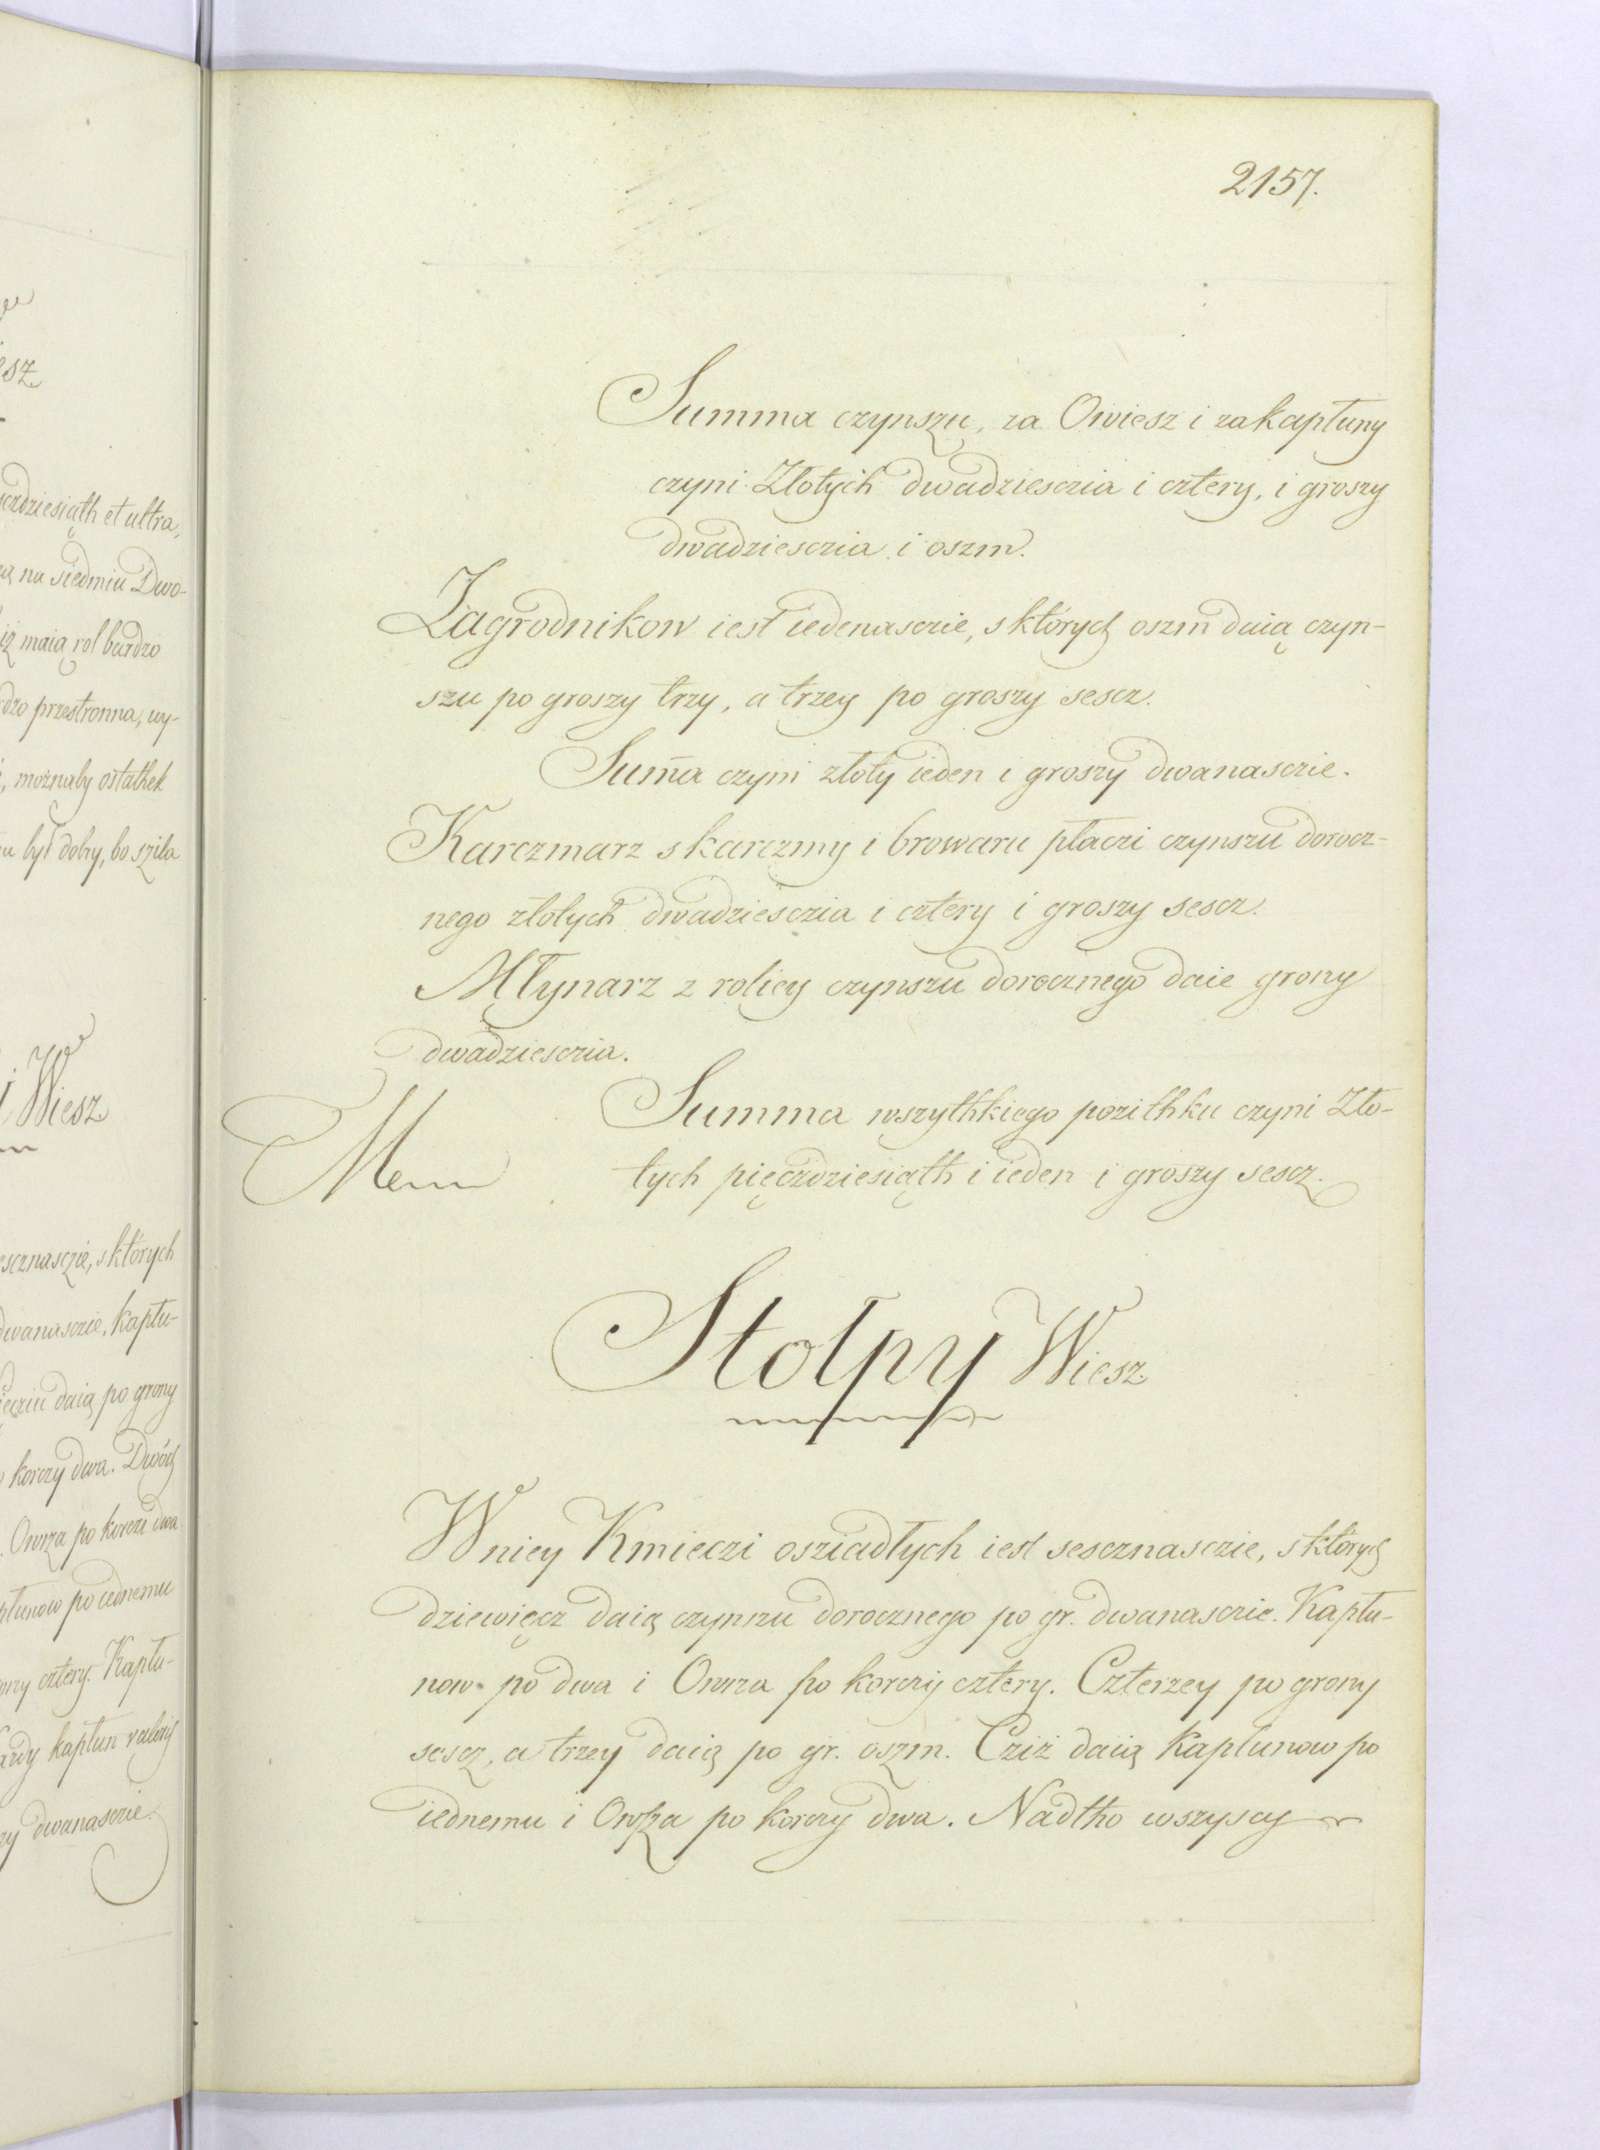 2157.
Summa czynszu, za Owiesz i za kapłuny
czyni Złotych dwadziesczia i cztery, i groszy
dwadziesczia i oszm.
Zagrodnikow iest iedenasczie, s których oszm daią czyn-
szu po groszy trzy, a trzey po groszy sescz.
Sum̄a czyni złoty ieden i groszy dwanasczie.
Karczmarz s karczmy i browaru płaczi czynszu dorocz-
nego złotych dwadziesczia i cztery i groszy sescz.
Młynarz z rolicy czynszu dorocznego daie groszy
dwadziesczia.
Summa wszythkiego pozithku czyni Zło-
tych pięczdziesiąth i ieden i groszy sescz.
Stołpy Wiesz
W niey Kmieczi osziadłych iest sescznasczie, s których
dziewięcz daią czynszu dorocznego po gr. dwanasczie. Kapłu-
now po dwa i Owsza po korczy cztery. Czterzey po groszy
sescz, a trzey daią po gr. oszm. Cziż daią Kapłunow po
iednemu i Owsza po korczy dwa. Nadtho wszyscy
esz
sczdziesiąth et ultra,
na siedmiu Dwo-
iż maią rol bardzo
dzo przestronna, wy-
możnaby ostathek
był dobry, bo sziła
Wiesz
scznasczie, s których
dwanasczie, kapłu-
daią po groszy
korczy dwa. Dwóch
Owsza po korczi dwa
płunow po iednemu
cztery. Kapłu-
kapłun
dwanasczie.